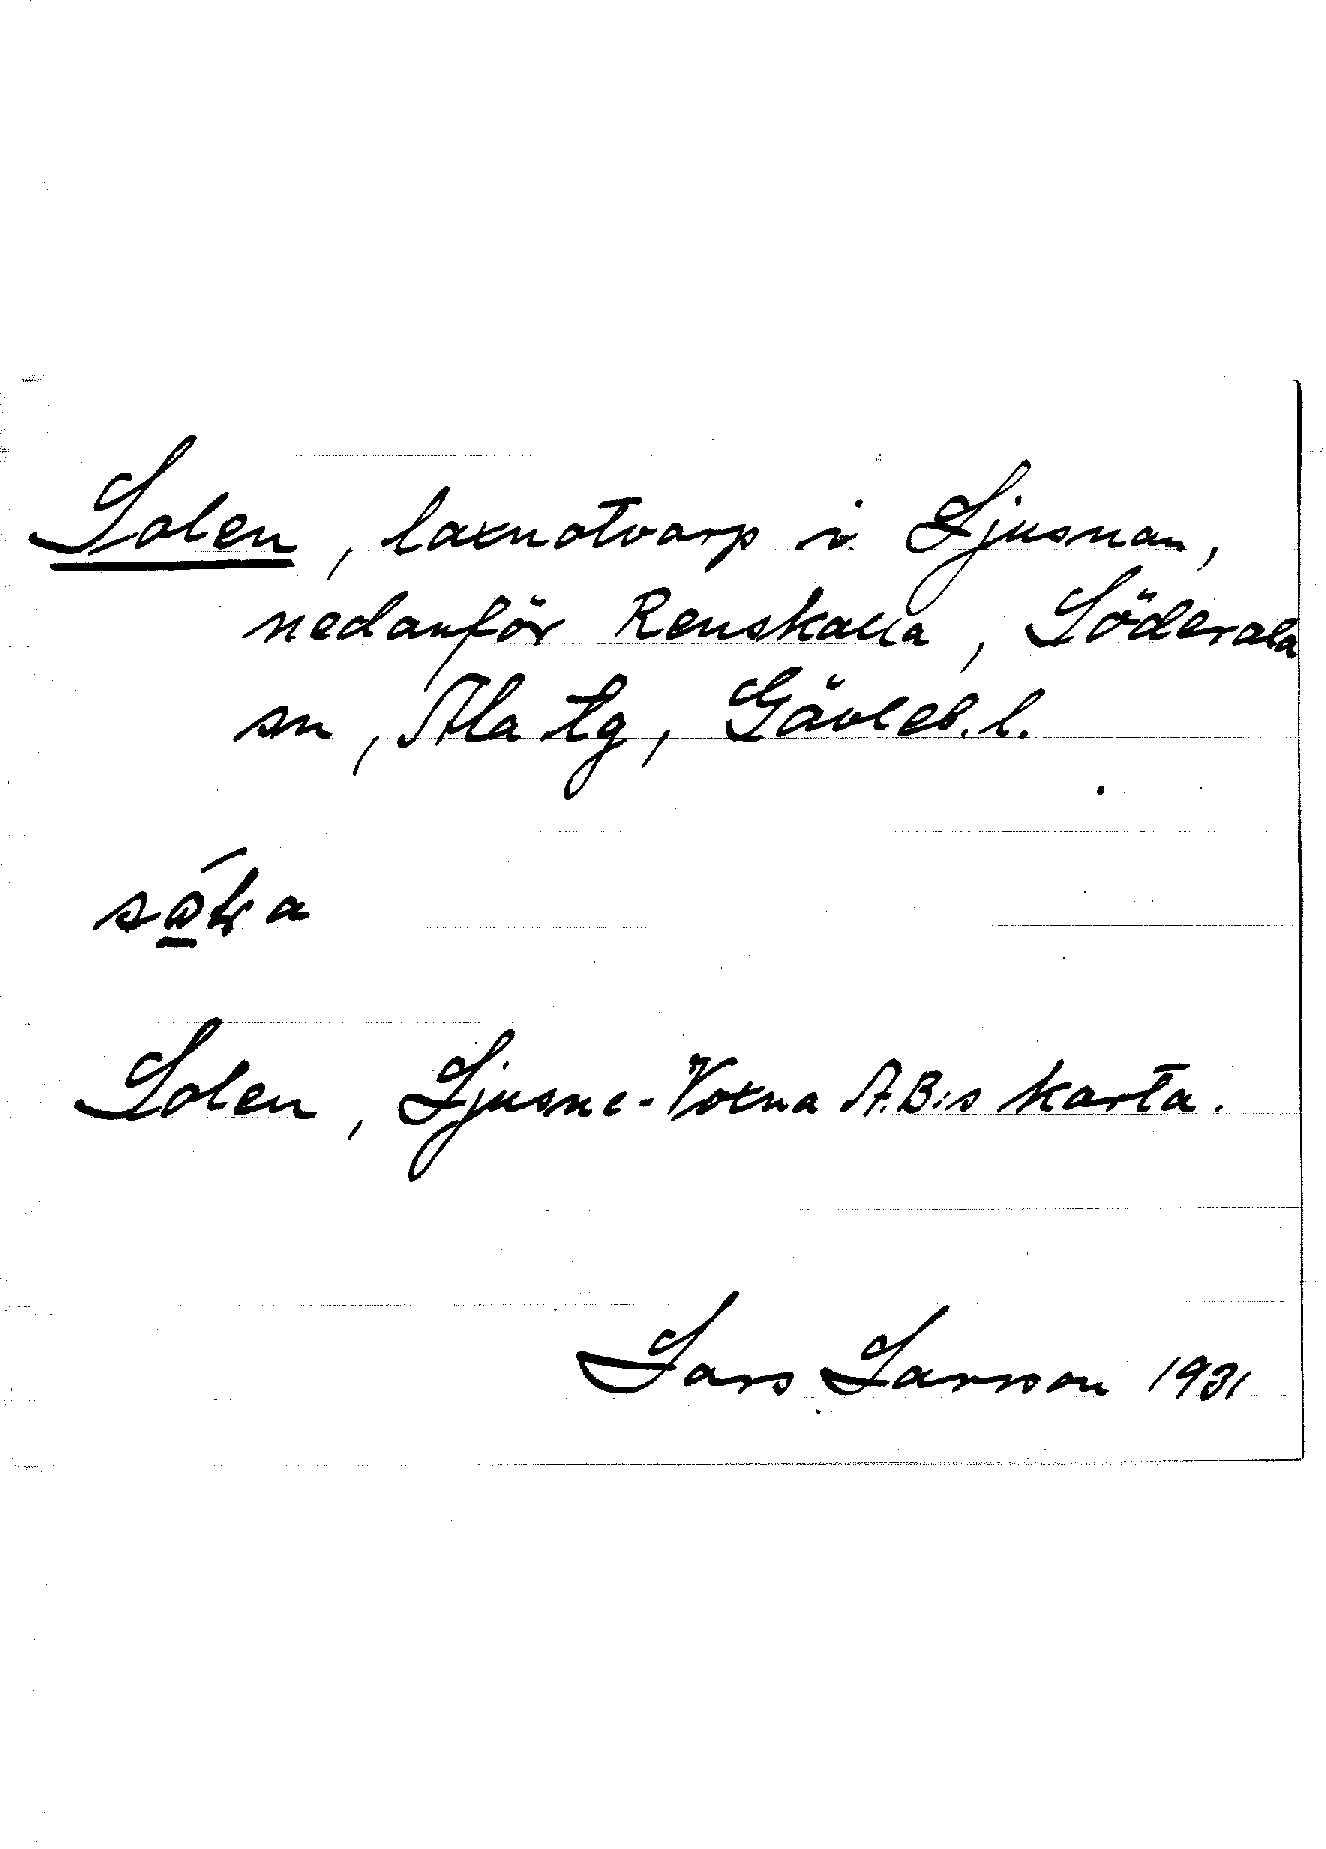 Solen, laxnotvarp i Ljusnan,
nedanför Renskalla, Söderala
sn, Ala tg, Gävleb. l.
Solen, Ljusne-Voxna A.B:s karta.
Lars Larsson 1931